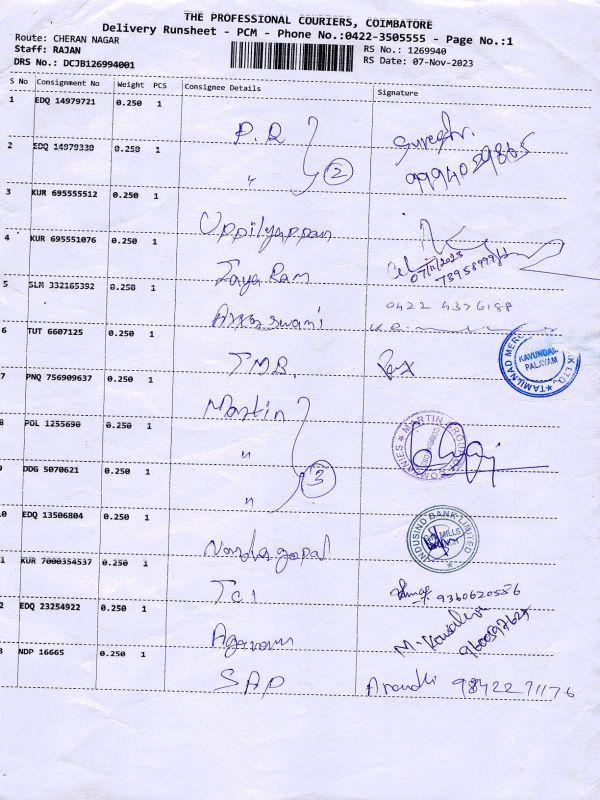 THE PROFESSIONAL COURIERS, COIMBATORE
Delivery Runsheet - PCM - Phone No.:0422-3505555 - Page No.:1
Route: CHERAN NAGAR
RS No.: 1269940
Staff: RAJAN
RS Date: 07-Nov-2023
DRS No.: DCJB126994001
S No Consignment No Weight PCS Consignee Details Signature
1 EDQ 14979721 0.250 1
P.R
2 EDQ 14979330 0.250 1
" 2
3 KUR 695555512 0.250 1
Uppilyappan
4 KUR 695551076 0.250 1
07/11/2023
Jaya Ram
5 SLM 332165392 0.250 1
0422 4376188
6 TUT 6607125 0.250 1
TMB.
KAVUNDAM PALAYAM
7 PNQ 756909637 0.250 1
Martin
8 POL 1255690 0.250 1
"
9 DDG 5070621 0.250 1
" 3
0 EDQ 13506804 0.250 1
INDUSIND BANK LIMITED
Nandagopal
1 KUR 7000354537 0.250 1
TCI
9360620556
2 EDQ 23254922 0.250 1
3 NDP 16665 0.250 1
SAP
9842271176